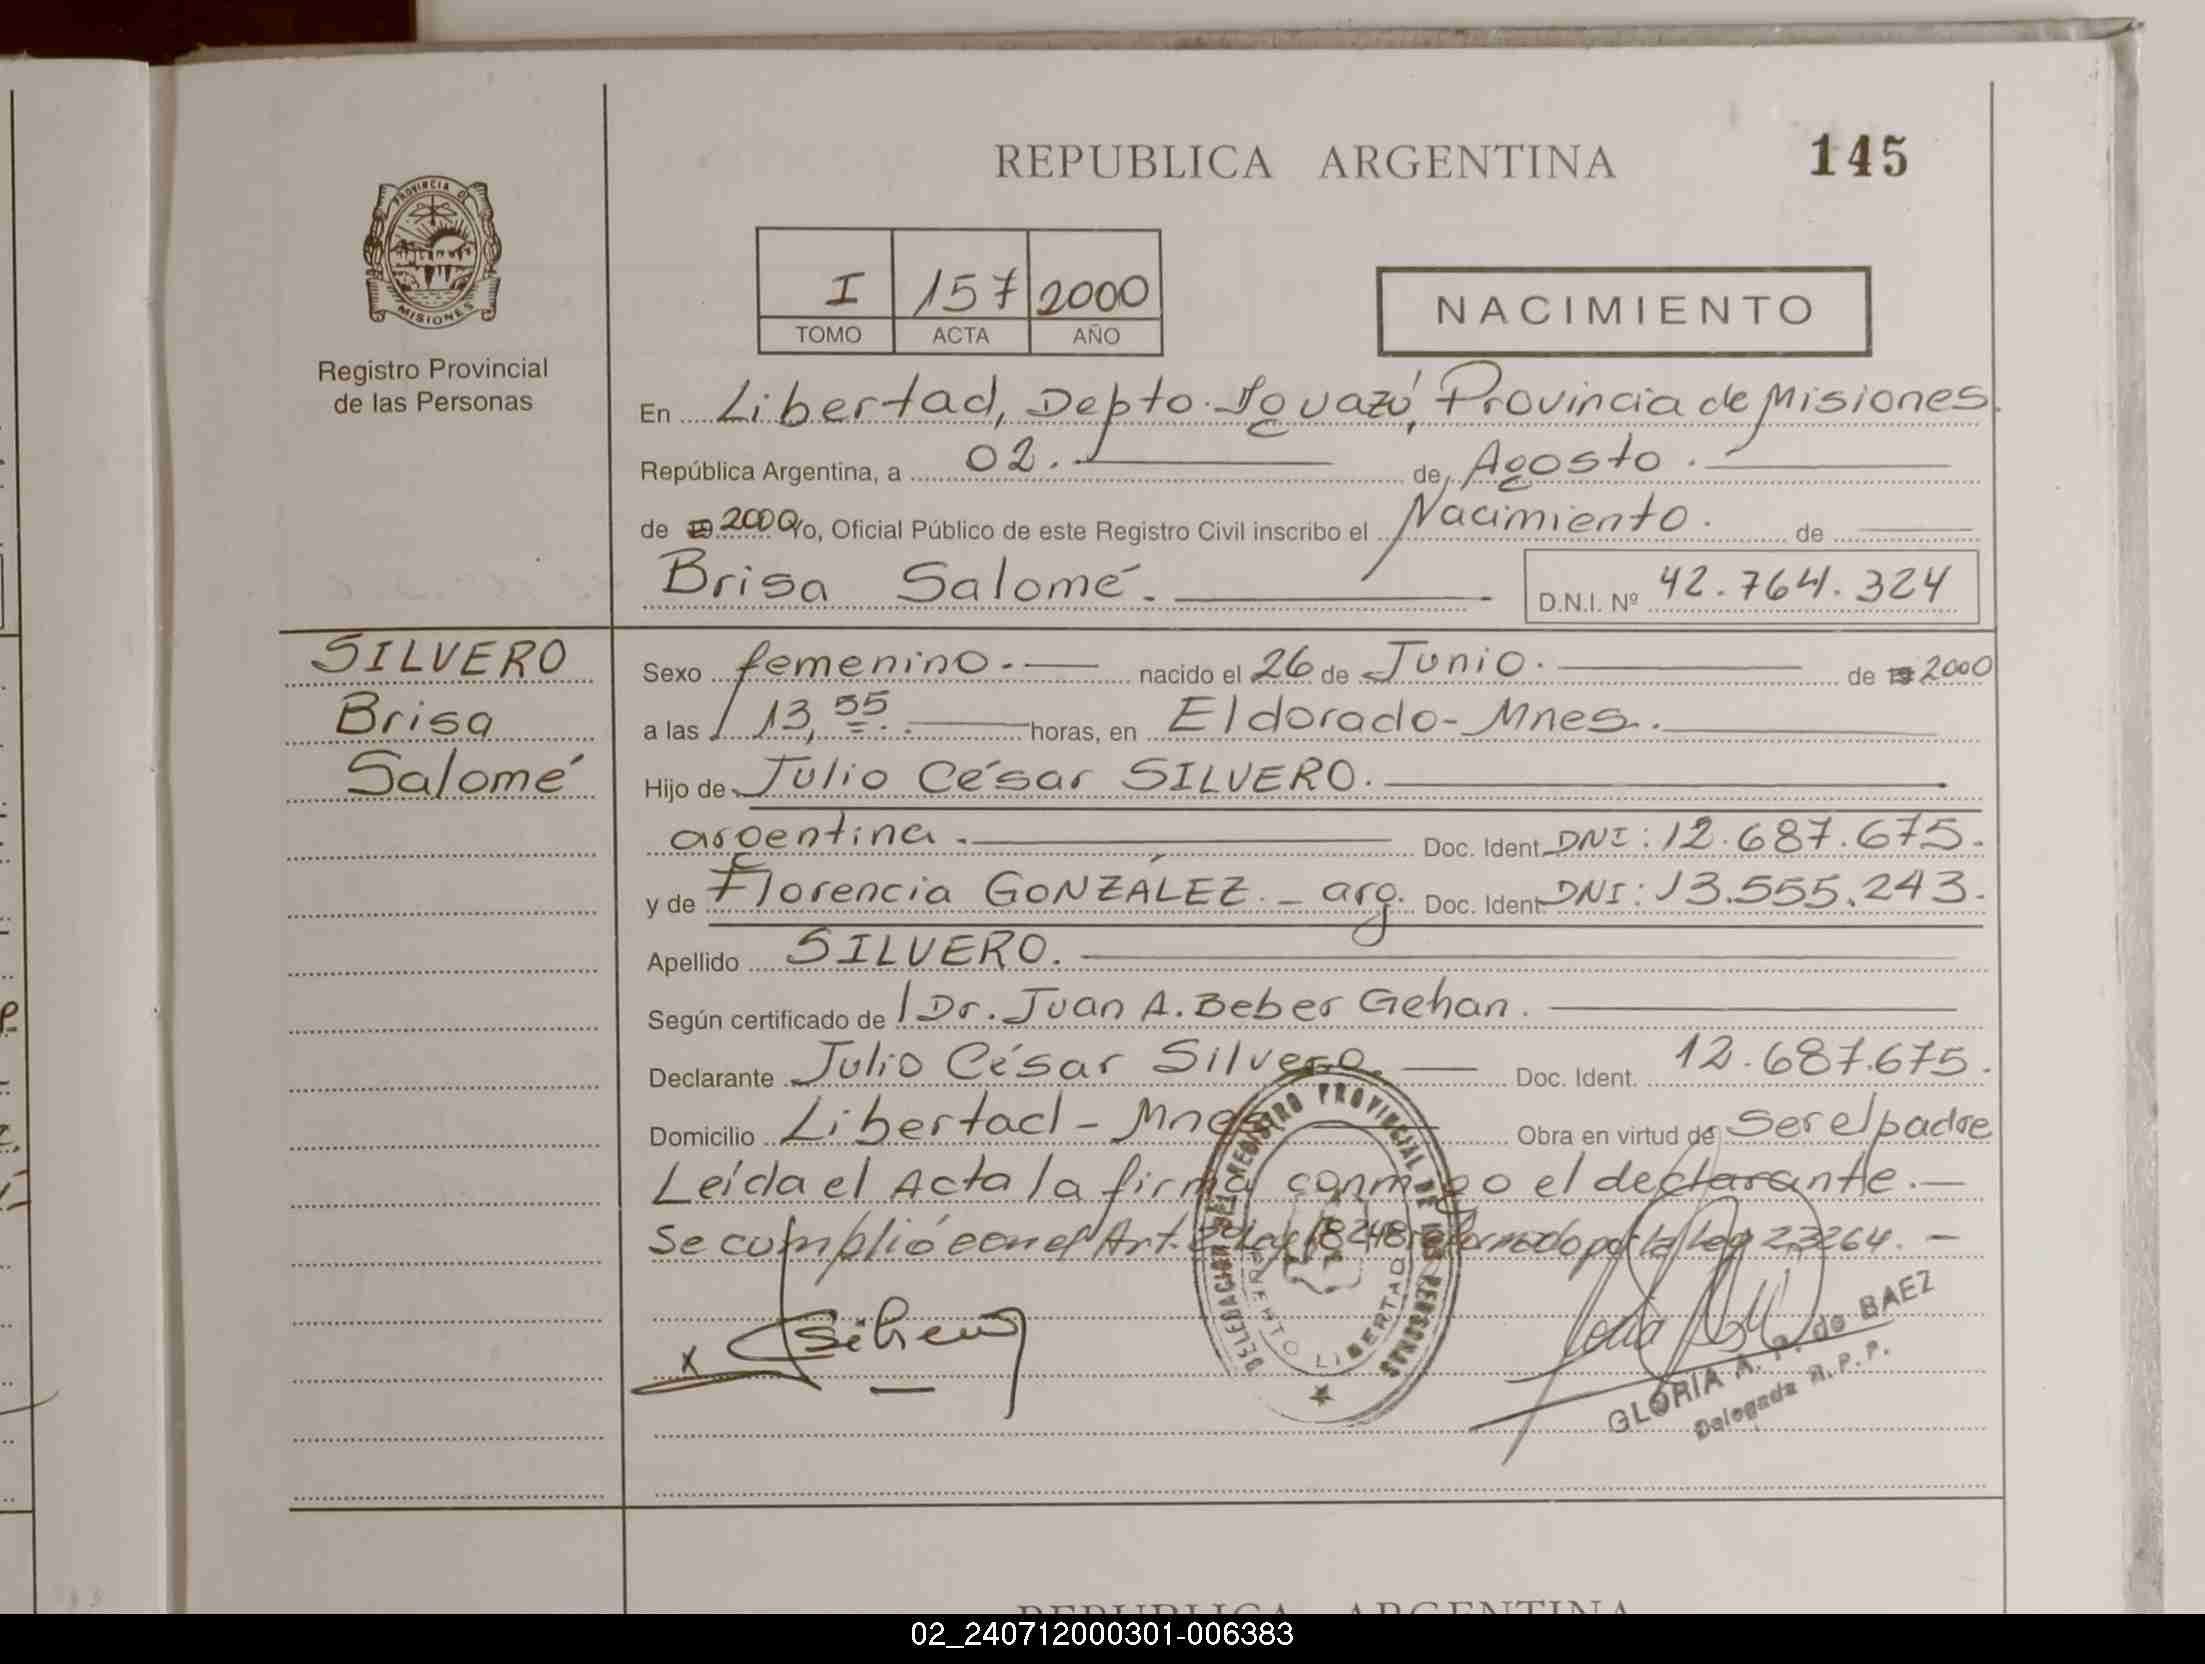 REPUBLICA ARGENTINA
145
PROVINCIA DE
MISIONES
Registro Provincial
de las Personas
I 157 2000
TOMO ACTA AÑO
NACIMIENTO
En Libertad, Depto. Iguazú, Provincia de Misiones.
República Argentina, a 02. de Agosto.
de 19 2000 Yo, Oficial Público de este Registro Civil inscribo el Nacimiento. de
Brisa Salomé.
D.N.I. Nº 42.764.324
SILVERO
Brisa
Salomé
Sexo femenino. nacido el 26 de Junio. de 19 2000
a las 13,55. horas, en Eldorado- Mnes.
Hijo de Julio César SILVERO.
argentina. Doc. Ident. DNI: 12.687.675.
y de Florencia GONZÁLEZ. - arg. Doc. Ident. DNI: 13.555.243.
Apellido SILVERO.
Según certificado de Dr. Juan A. Beber Gehan.
Declarante Julio César Silvero. Doc. Ident. 12.687.675.
Domicilio Libertad - Mnes Obra en virtud de ser el padre
Leída el Acta la firma conmigo el declarante.-
Se cumplió con el Art. Ley 18248 reformado por la Ley 23264. -
DELEGACION DEL REGISTRO PROVINCIAL DE LAS PERSONAS
LIBERTAD
x Silvero
GLORIA A. P. de BAEZ
Delegada R.P.P.
REPUBLICA ARGENTINA
02_240712000301-006383